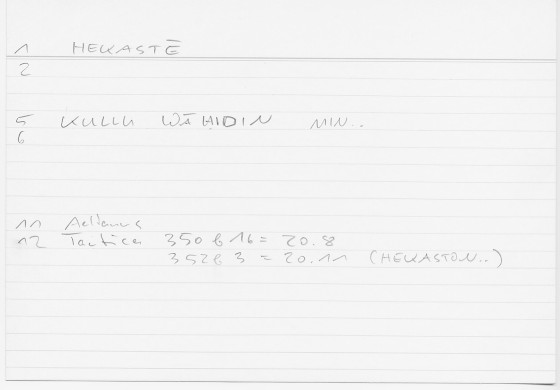 1 HEKASTĒ
2
5 KULLU WĀHIDIN MIN..
6
11 Aelianus
12 Tactica 350 b 16 = 20.8
352 b 3 = 20.11 (HEKASTON..)